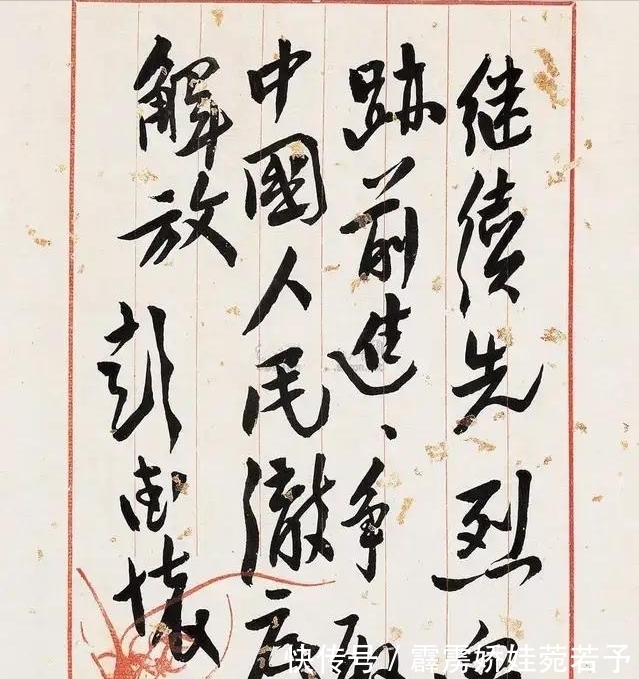 继續先烈血
跡前進、争取
中國人民徹底
解放 彭德懷
快传号 / 霹雳娇娃苑若予